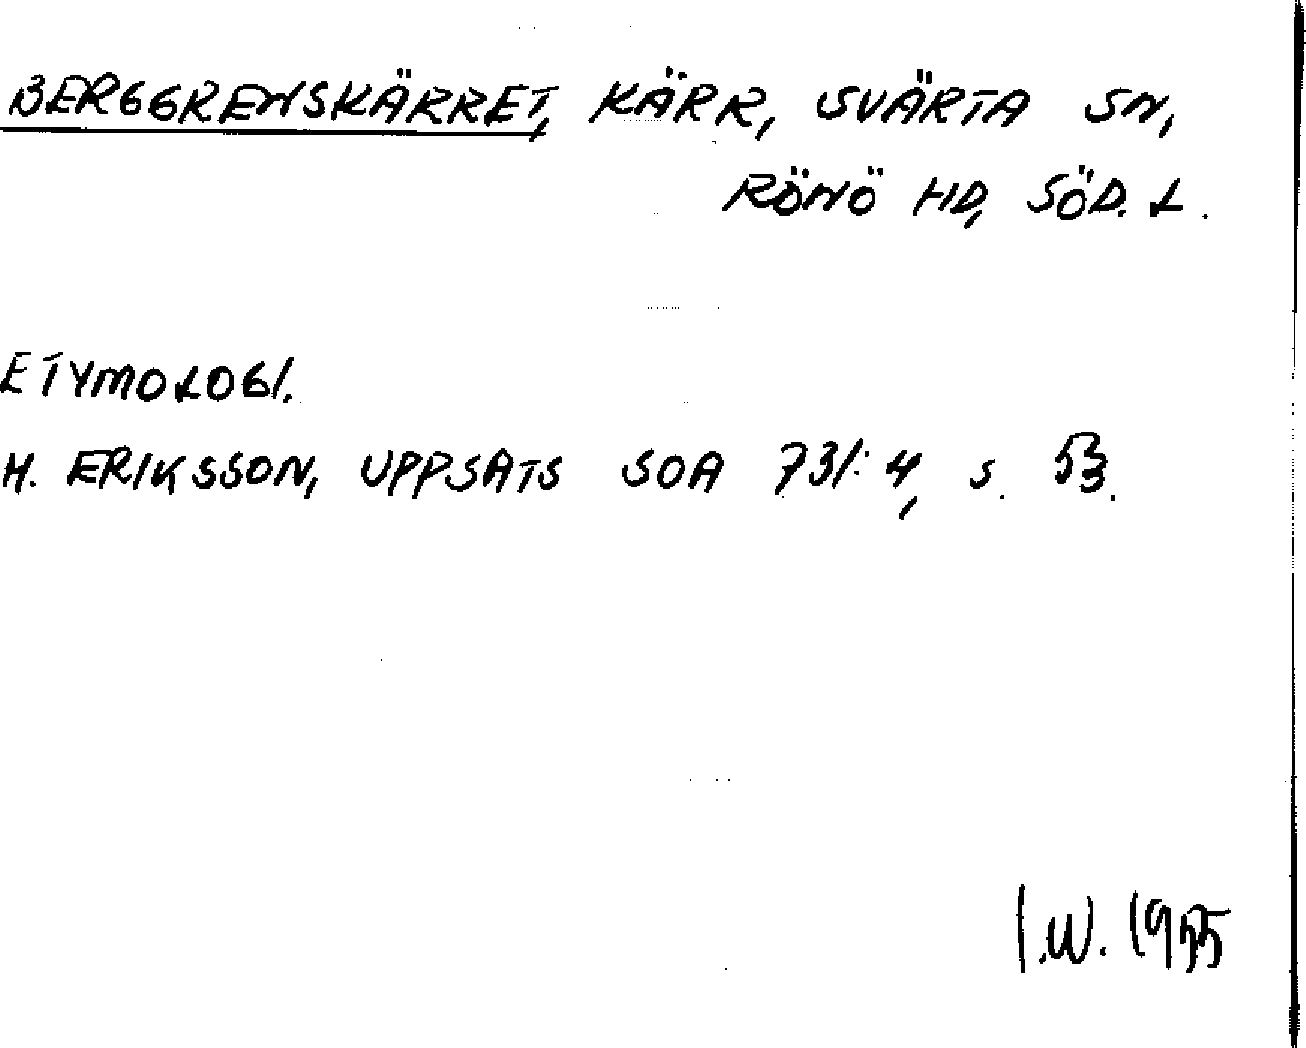 BERGGRENSKÄRRET, KÄRR, SVÄRTA SN,
RÖNÖ HD, SÖD. L.
ETYMOLOGI.
H. ERIKSSON, UPPSATS SOA 731:4, S. 53.
I.W. 1955